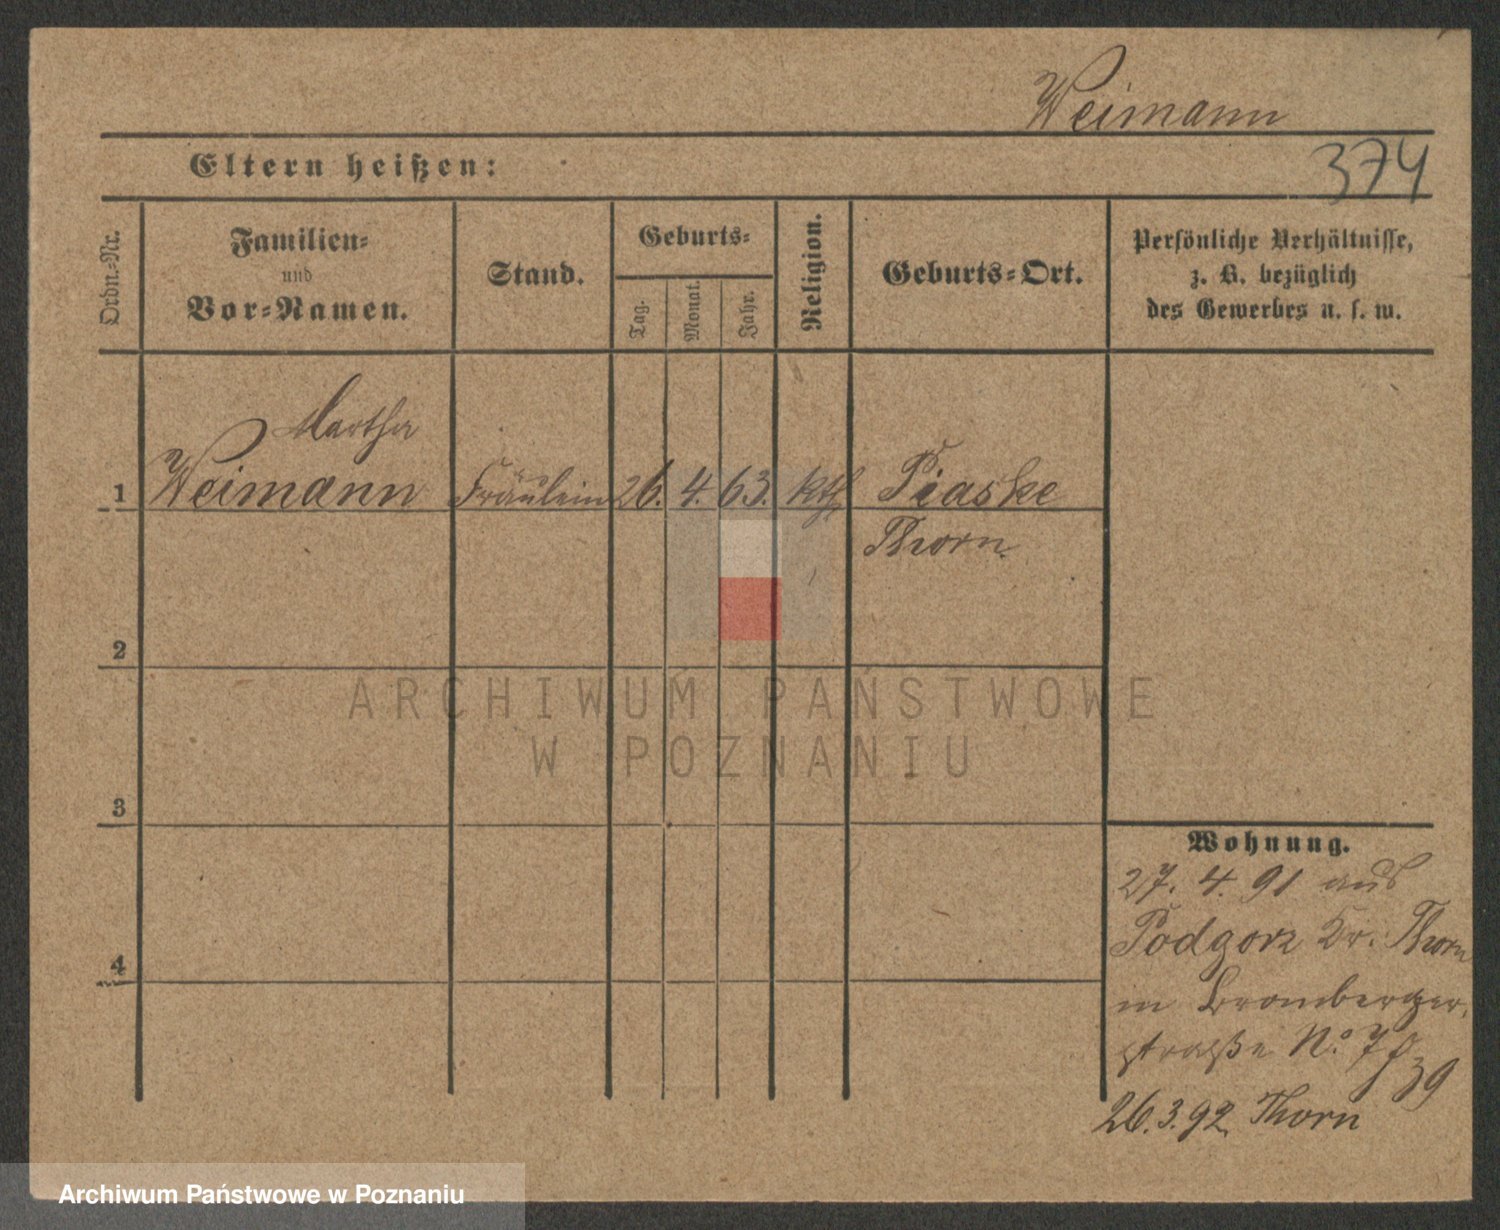 Weimann
374
Eltern heißen:
Ordn.-Nr.
Familien-
und
Vor-Namen.
Stand.
Geburts-
Tag.
Monat.
Jahr.
Religion.
Geburts-Ort.
Persönliche Verhältnisse,
z. B. bezüglich
des Gewerbes u. s. w.
Martha
1 Weimann Fräulein 26. 4. 63. kth Piaske
Thorn
2
ARCHIWUM PAŃSTWOWE
W POZNANIU
3
Wohnung.
27. 4. 91 aus
Podgorz Kr. Thorn
in Bromberger
straße No 7
39
4
26.3.92 Thorn
Archiwum Państwowe w Poznaniu